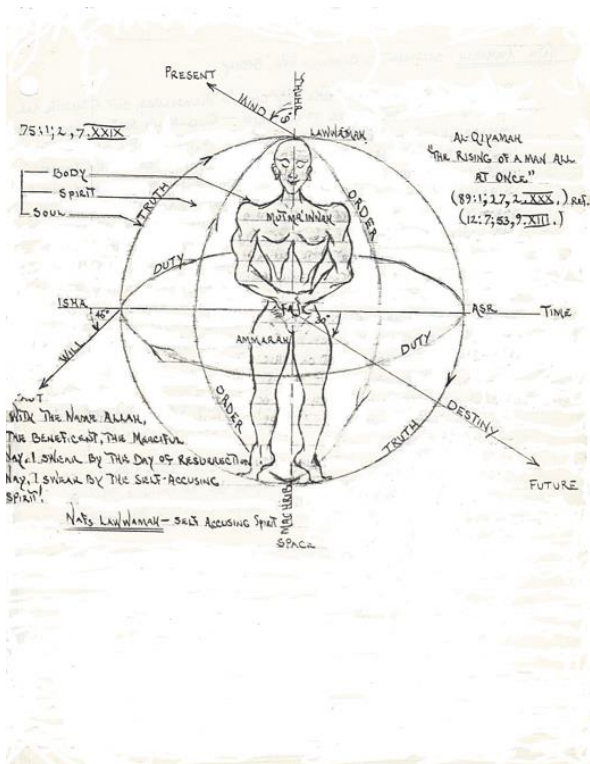 PRESENT
ZHUHR
MIND
LAWWAMAH
75:1;2,7.XXIX
AL QIYAMAH
"THE RISING OF A MAN ALL
AT ONCE"
(89:1;27,2.XXX.) REF.
(12:7;53,9.XIII.)
BODY
SPIRIT
SOUL
TRUTH
ORDER
MUTMA'INNAH
DUTY
ISHA
45°
FAJR
ASR
TIME
WILL
AMMARAH
DUTY
ORDER
TRUTH
DESTINY
FUTURE
WITH THE NAME ALLAH,
THE BENEFICENT, THE MERCIFUL
NAY, I SWEAR BY THE DAY OF RESURRECTION
NAY, I SWEAR BY THE SELF-ACCUSING
SPIRIT!
NAFS LAWWAMAH — SELF ACCUSING SPIRIT
MAGHRIB
SPACE